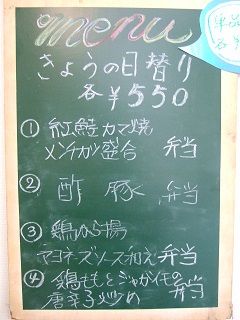 menu
きょうの日替り
各￥550
① 紅鮭カマ焼
メンチカツ盛合 弁当
② 酢豚 弁当
③ 鶏から揚
マヨネーズソース和え 弁当
④ 鶏ももとジャガイモの
唐辛子炒め 弁当